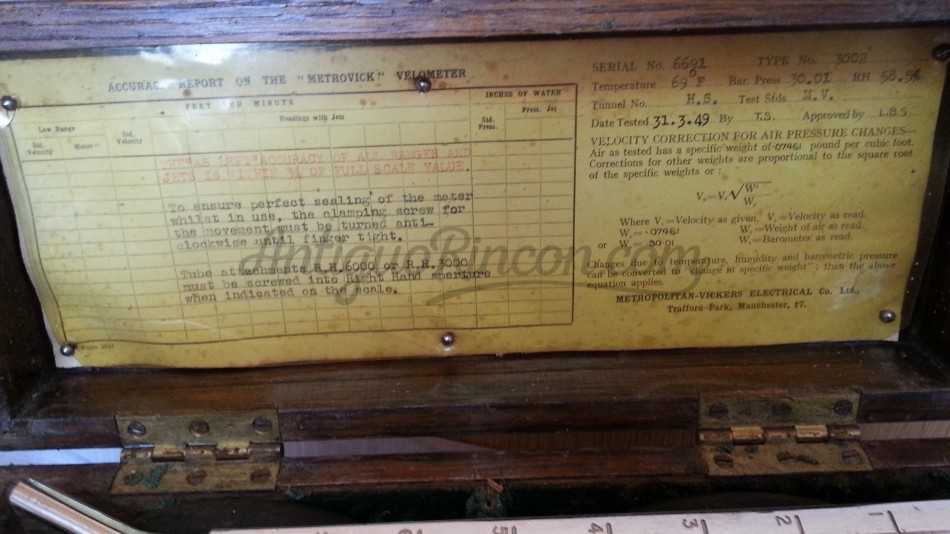 ACCURACY REPORT ON THE "METROVICK" VELOMETER
FEET PER MINUTE
INCHES OF WATER
Low Range
Readings with Jets
Std. Velocity
Meter
Std. Velocity
Std. Press.
Press. Jet
THE AS LEFT ACCURACY OF ALL RANGES AND
JETS IS WITHIN 3% OF FULL SCALE VALUE.
To ensure perfect sealing of the meter
whilst in use, the clamping screw for
the movement must be turned anti-
clockwise until finger tight.
Tube attachments R.H.6000 or R.H.3000
must be screwed into Right Hand aperture
when indicated on the scale.
SERIAL No. 6691 TYPE No. 3002
Temperature 69°F Bar. Press 30.01 RH 58.5%
Tunnel No. H.S. Test Stds N.V.
Date Tested 31.3.49 By T.S. Approved by L.B.S
VELOCITY CORRECTION FOR AIR PRESSURE CHANGES—
Air as tested has a specific weight of ·07461 pound per cubic foot.
Corrections for other weights are proportional to the square root
of the specific weights or:
Where V =Velocity as given, V =Velocity as read.
W =·07461 W =Weight of air as read.
or W =30·01 W =Barometer as read.
Changes due to temperature, humidity and barometric pressure
can be converted to "change in specific weight"; then the above
equation applies.
METROPOLITAN-VICKERS ELECTRICAL Co. Ltd.,
Trafford Park, Manchester, 17.
AntiqueRincon.com
6 5 4 3 2 1